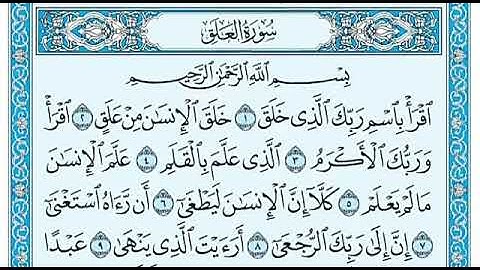 سُورَةُ الْعَلَقِ
بِسْمِ ٱللَّهِ ٱلرَّحْمَٰنِ ٱلرَّحِيمِ
ٱقْرَأْ بِٱسْمِ رَبِّكَ ٱلَّذِى خَلَقَ ١ خَلَقَ ٱلْإِنسَٰنَ مِنْ عَلَقٍ ٢ ٱقْرَأْ
وَرَبُّكَ ٱلْأَكْرَمُ ٣ ٱلَّذِى عَلَّمَ بِٱلْقَلَمِ ٤ عَلَّمَ ٱلْإِنسَٰنَ
مَا لَمْ يَعْلَمْ ٥ كَلَّآ إِنَّ ٱلْإِنسَٰنَ لَيَطْغَىٰٓ ٦ أَن رَّءَاهُ ٱسْتَغْنَىٰٓ
٧ إِنَّ إِلَىٰ رَبِّكَ ٱلرُّجْعَىٰٓ ٨ أَرَءَيْتَ ٱلَّذِى يَنْهَىٰ ٩ عَبْدًا